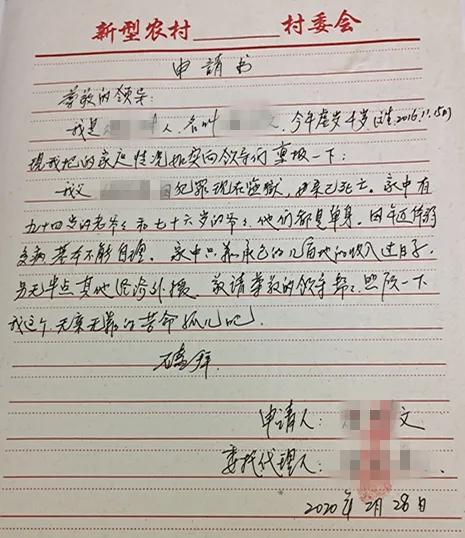 新型农村 村委会
申請书
尊敬的领导:
我是 人,名叫 文,今年虚岁4岁(生2016.11.15日)
现我把的家庭情况如实向领导们禀报一下:
我父 因犯罪现在监狱,母亲已死亡。家中有
九十四岁的老爷、和七十六岁的爷、他们都是单身。因年迈体弱
多病基本不能自理。家中只靠承包的几亩地的收入过日子,
另无半点其他经济外援。敬请尊敬的领导帮、照顾一下
我这个无辜无罪的苦命孤儿吧!
叩拜
申请人: 文
委托代理人:
2020年2月28日